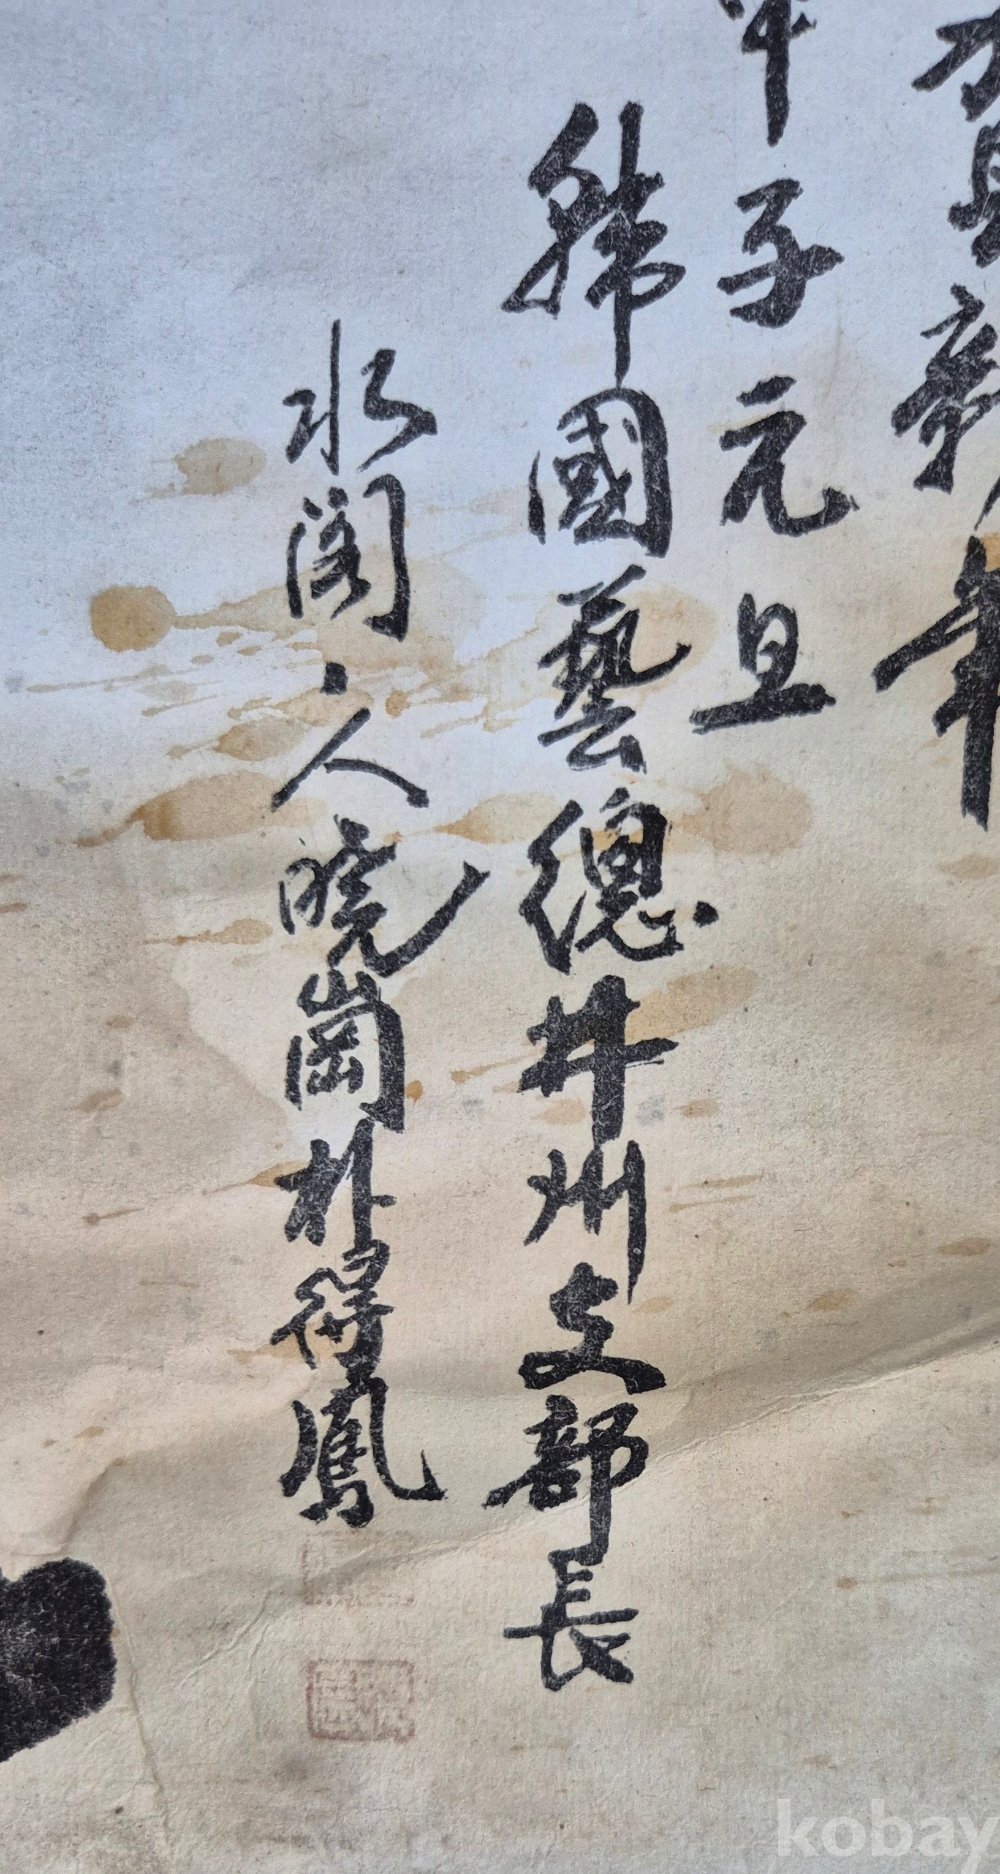 賀新年
子元旦
韓國藝總井州支部長
水閣人曉崗朴得鳳
kobay